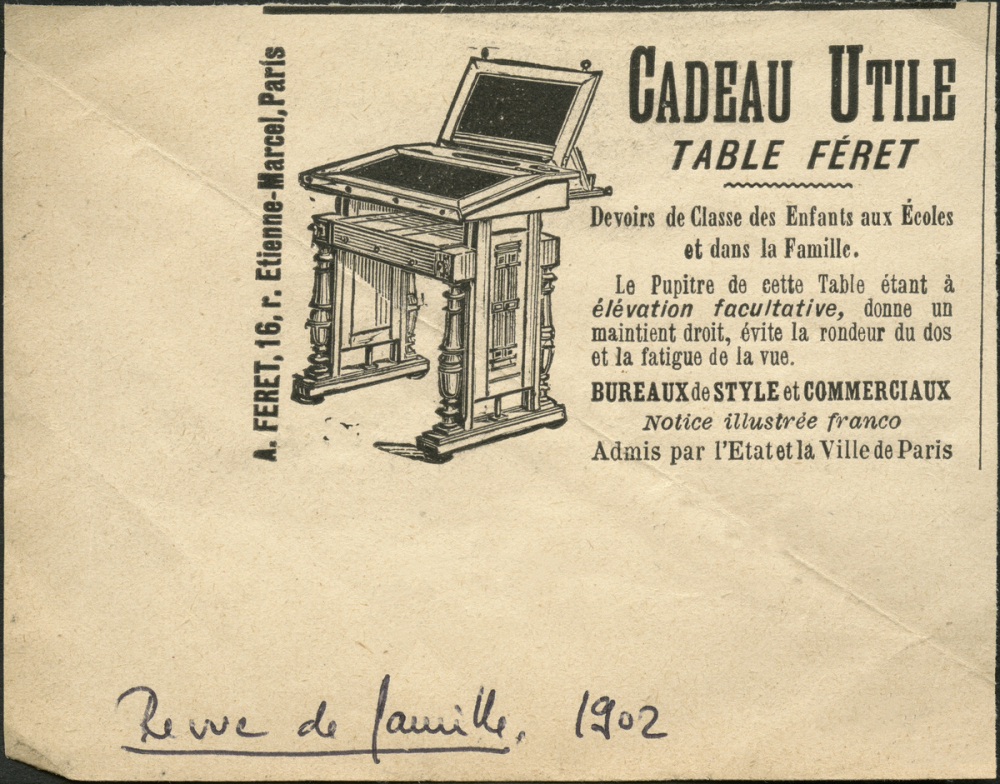 A. FERET, 16, r. Etienne-Marcel, Paris
CADEAU UTILE
TABLE FÉRET
Devoirs de Classe des Enfants aux Écoles
et dans la Famille.
Le Pupitre de cette Table étant à
élévation facultative, donne un
maintient droit, évite la rondeur du dos
et la fatigue de la vue.
BUREAUX de STYLE et COMMERCIAUX
Notice illustrée franco
Admis par l'Etat et la Ville de Paris
Revue de famille, 1902